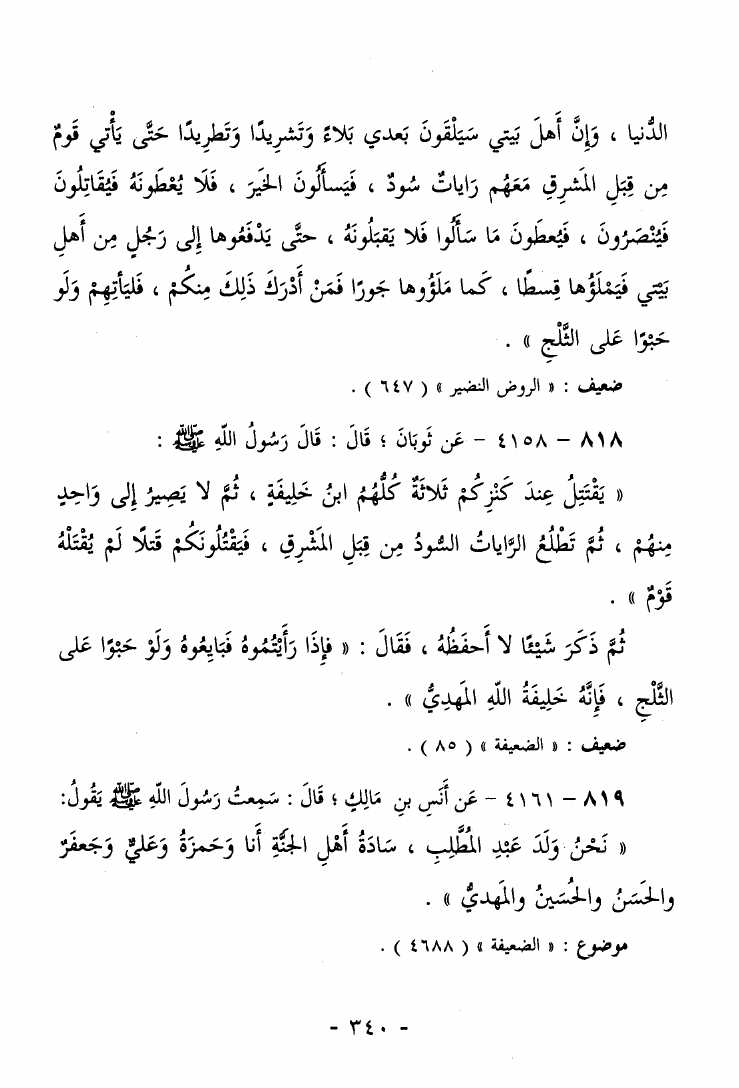 الدُّنيا ، وَإِنَّ أَهلَ بَيتي سَيَلْقَونَ بَعدي بَلاءً وَتَشرِيدًا وَتَطرِيدًا حَتَّى يَأْتي قَومٌ
مِن قِبَلِ المَشرِقِ مَعَهُم رَاياتٌ سُودٌ ، فَيَسأَلُونَ الخَيرَ ، فَلَا يُعْطَونَهُ فَيُقَاتِلُونَ
فَيُنْصَرُونَ ، فَيُعطَونَ مَا سَأَلُوا فَلا يَقبَلُونَهُ ، حتَّى يَدْفَعُوها إِلى رَجُلٍ مِن أَهلِ
بَيْتي فَيَمْلَؤُها قِسطًا ، كَما مَلَؤُوها جَورًا فَمَنْ أَدْرَكَ ذَلِكَ مِنكُمْ ، فَليَأتِهِمْ وَلَو
حَبْوًا عَلى الثَّلْجِ » .
ضعيف : « الروض النضير » ( ٦٤٧ ) .
٨١٨ – ٤١٥٨ – عَن ثَوبَانَ ؛ قَالَ : قَالَ رَسُولُ اللّهِ ﷺ :
« يَقْتَتِلُ عِندَ كَنْزِكُمْ ثَلاثَةٌ كُلُّهُمُ ابنُ خَلِيفَةٍ ، ثُمَّ لا يَصِيرُ إِلى وَاحِدٍ
مِنهُمْ ، ثُمَّ تَطْلُعُ الرَّاياتُ السُّودُ مِن قِبَلِ المَشْرِقِ ، فَيَقْتُلُونَكُمْ قَتلًا لَمْ يُقْتَلْهُ
قَوْمٌ » .
ثُمَّ ذَكَرَ شَيْئًا لا أَحفَظُهُ ، فَقَالَ : « فإِذَا رَأَيْتُمُوهُ فَبَايِعُوهُ وَلَوْ حَبْوًا عَلى
الثَّلْجِ ، فَإِنَّهُ خَلِيفَةُ اللّهِ المَهدِيُّ » .
ضعيف : « الضعيفة » ( ٨٥ ) .
٨١٩ – ٤١٦١ – عَن أَنَسِ بنِ مَالِكٍ ؛ قَالَ : سَمِعتُ رَسُولَ اللّهِ ﷺ يَقُولُ:
« نَحْنُ وَلَدَ عَبْدِ المُطَّلِبِ ، سَادَةُ أَهْلِ الجَنَّةِ أَنا وَحَمزَةُ وَعَليٌّ وَجَعفَرٌ
والحَسَنُ والحُسَينُ والمَهديُّ » .
موضوع : « الضعيفة » ( ٤٦٨٨ ) .
- ٣٤٠ -